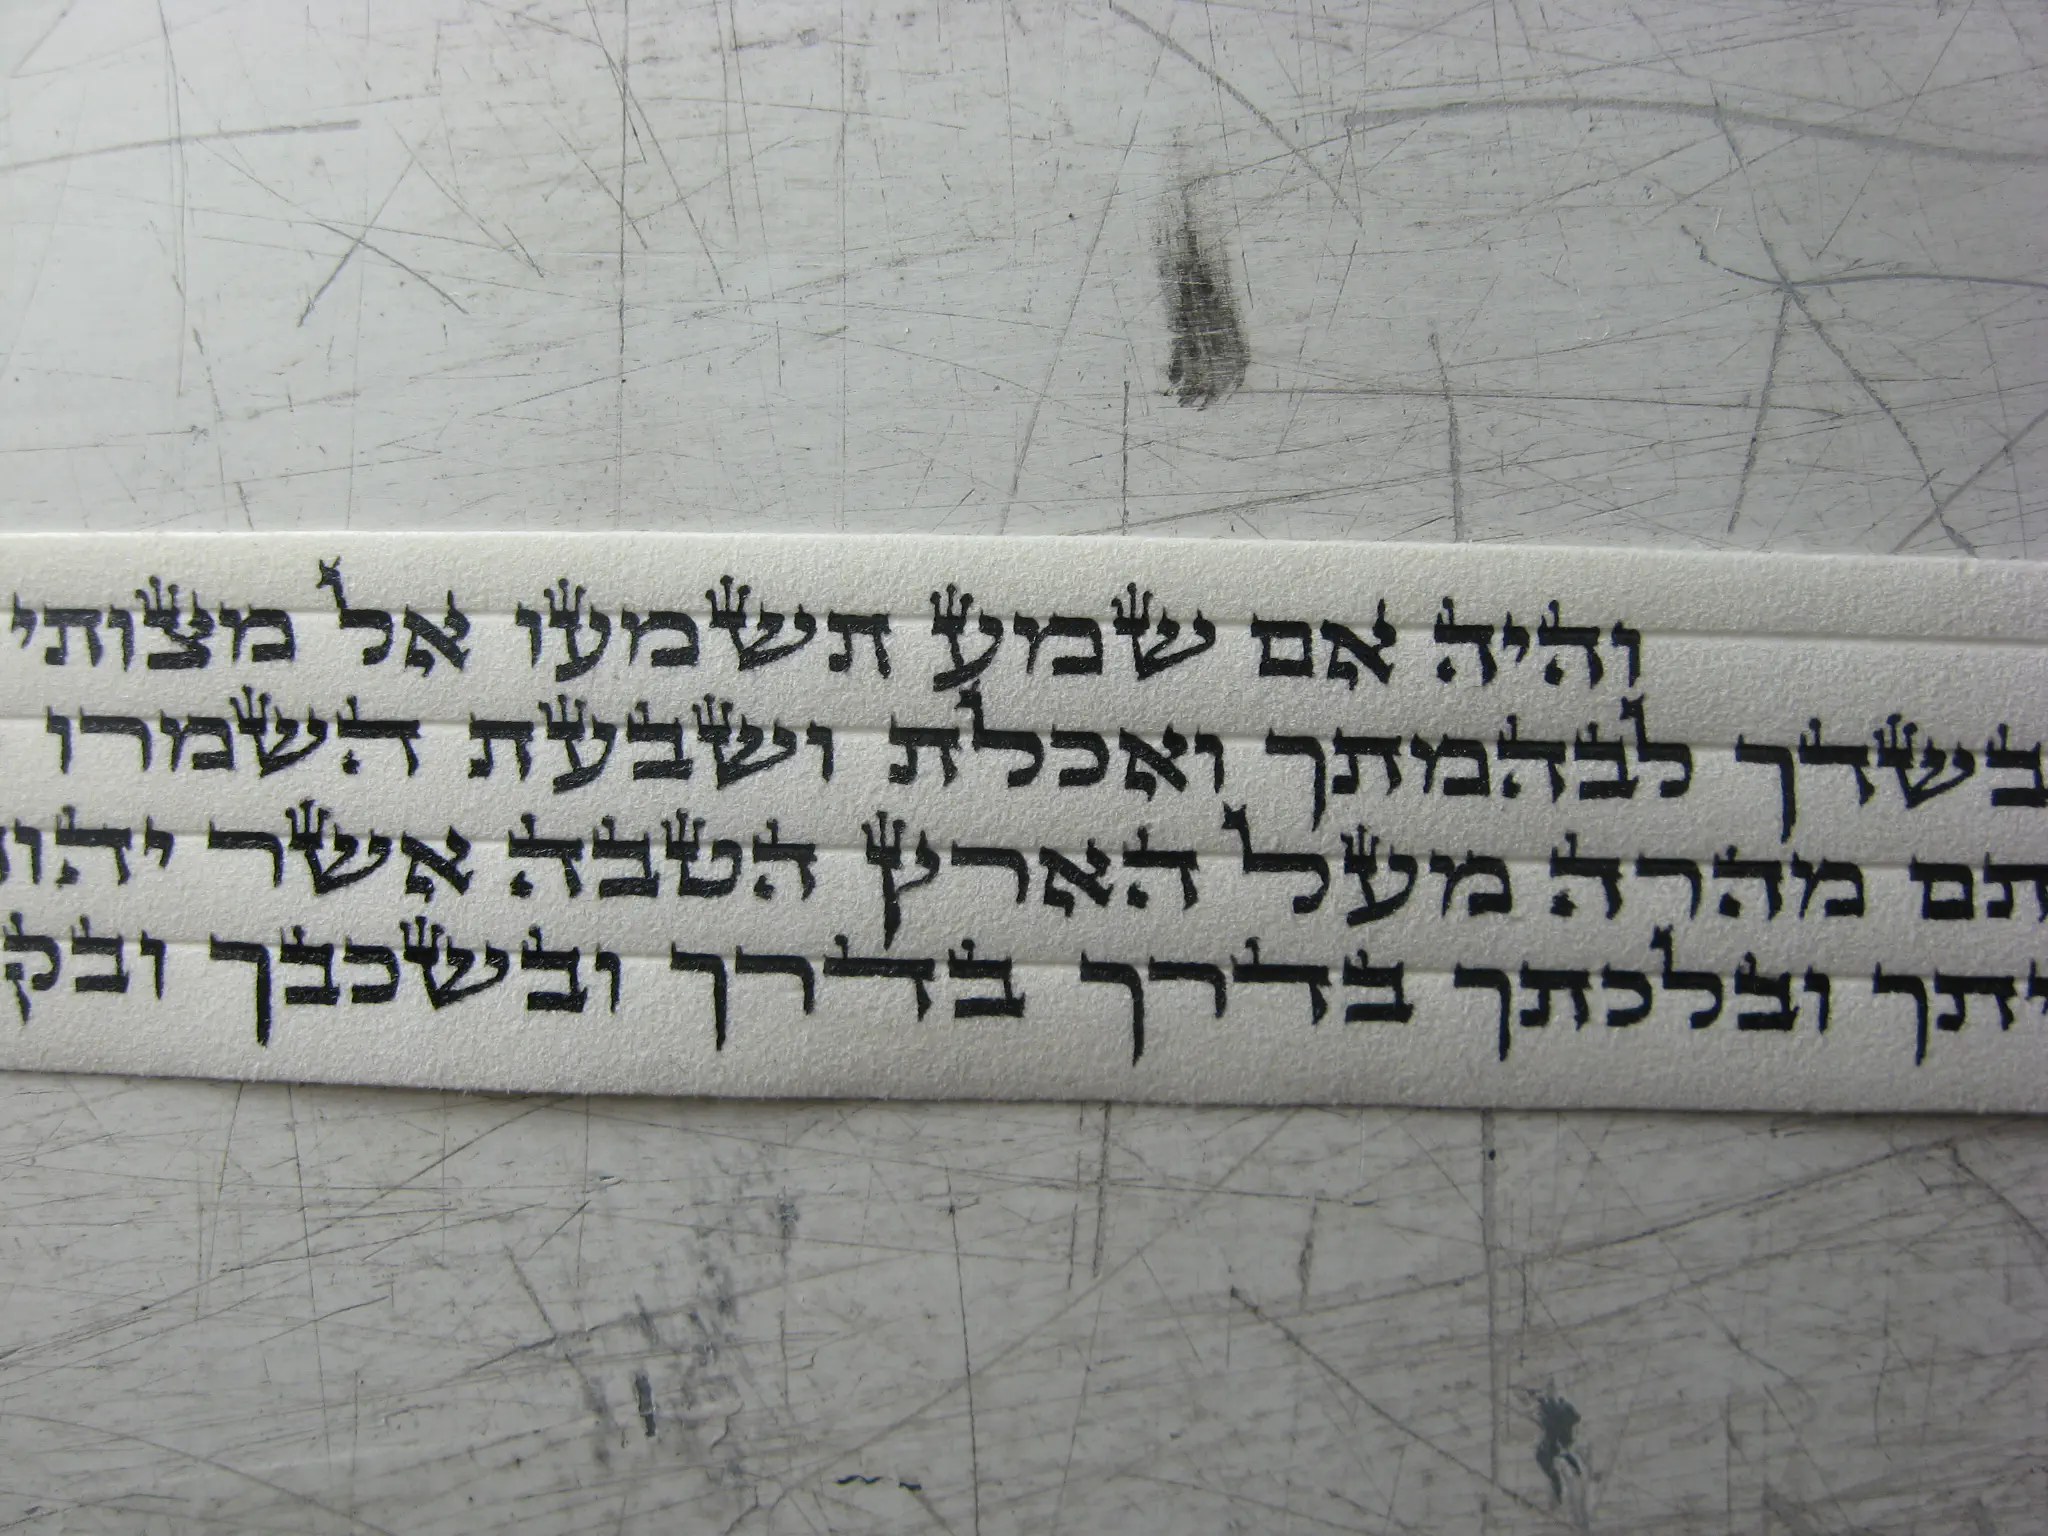 והיה אם שמע תשמעו אל מצותי
בשדך לבהמתך ואכלת ושבעת השמרו
תם מהרה מעל הארץ הטבה אשר יהוה
יתך ובלכתך בדרך בדרך ובשכבך ובק